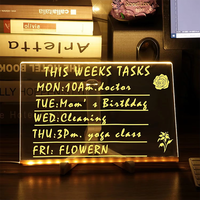 callatis
Arletta
BOOK
THIS WEEKS TASKS
MON:10Am.doctor
TUE:Mom's Birthdag
WED:Cleaning
THU:3Pm. yoga class
FRI: FLOWERN